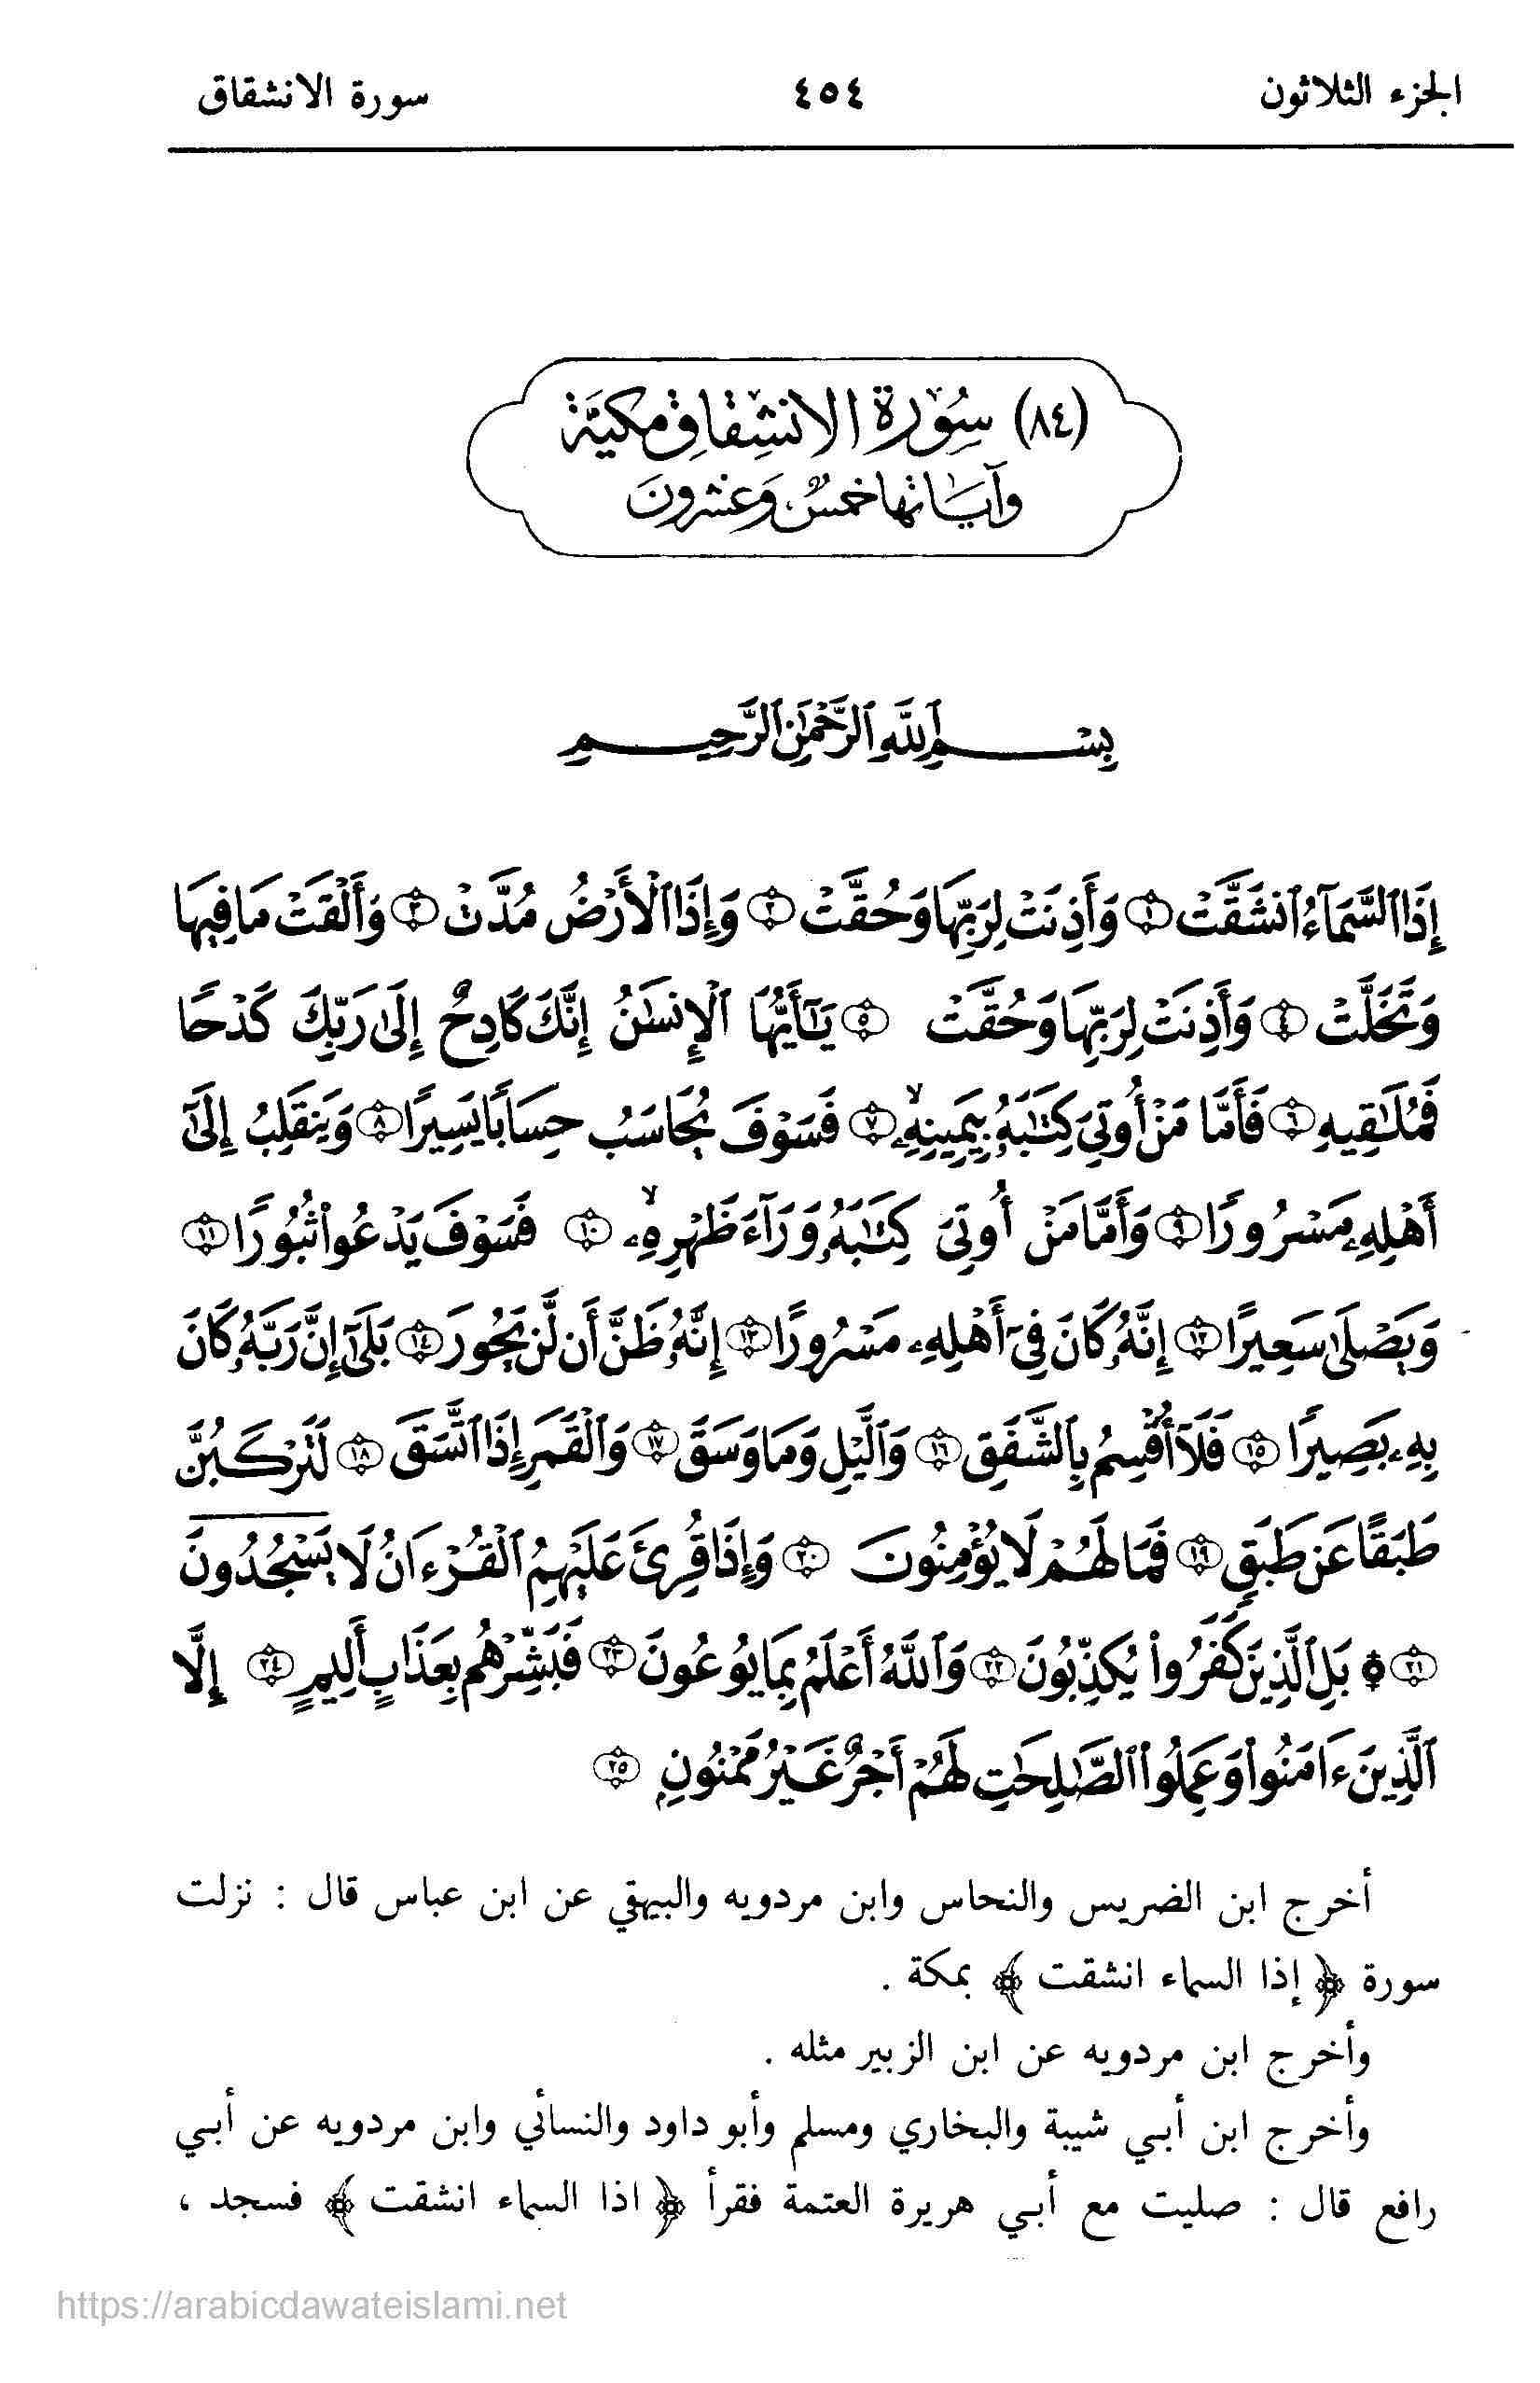 الجزء الثلاثون
٤٥٤
سورة الانشقاق
(٨٤) سُورة الانشِقاقِ مكيَّة
وآيَاتها خمسٌ وَعشرونَ
بِسۡمِ ٱللَّهِ ٱلرَّحۡمَٰنِ ٱلرَّحِيمِ
إِذَا ٱلسَّمَآءُ ٱنشَقَّتۡ ١ وَأَذِنَتۡ لِرَبِّهَا وَحُقَّتۡ ٢ وَإِذَا ٱلۡأَرۡضُ مُدَّتۡ ٣ وَأَلۡقَتۡ مَا فِيهَا
وَتَخَلَّتۡ ٤ وَأَذِنَتۡ لِرَبِّهَا وَحُقَّتۡ ٥ يَٰٓأَيُّهَا ٱلۡإِنسَٰنُ إِنَّكَ كَادِحٌ إِلَىٰ رَبِّكَ كَدۡحٗا
فَمُلَٰقِيهِ ٦ فَأَمَّا مَنۡ أُوتِيَ كِتَٰبَهُۥ بِيَمِينِهِۦ ٧ فَسَوۡفَ يُحَاسَبُ حِسَابٗا يَسِيرٗا ٨ وَيَنقَلِبُ إِلَىٰٓ
أَهۡلِهِۦ مَسۡرُورٗا ٩ وَأَمَّا مَنۡ أُوتِيَ كِتَٰبَهُۥ وَرَآءَ ظَهۡرِهِۦ ١٠ فَسَوۡفَ يَدۡعُواْ ثُبُورٗا ١١
وَيَصۡلَىٰ سَعِيرًا ١٢ إِنَّهُۥ كَانَ فِيٓ أَهۡلِهِۦ مَسۡرُورًا ١٣ إِنَّهُۥ ظَنَّ أَن لَّن يَحُورَ ١٤ بَلَىٰٓ إِنَّ رَبَّهُۥ كَانَ
بِهِۦ بَصِيرٗا ١٥ فَلَآ أُقۡسِمُ بِٱلشَّفَقِ ١٦ وَٱلَّيۡلِ وَمَا وَسَقَ ١٧ وَٱلۡقَمَرِ إِذَا ٱتَّسَقَ ١٨ لَتَرۡكَبُنَّ
طَبَقًا عَن طَبَقٖ ١٩ فَمَا لَهُمۡ لَا يُؤۡمِنُونَ ٢٠ وَإِذَا قُرِئَ عَلَيۡهِمُ ٱلۡقُرۡءَانُ لَا يَسۡجُدُونَ
٢١ ۩ بَلِ ٱلَّذِينَ كَفَرُواْ يُكَذِّبُونَ ٢٢ وَٱللَّهُ أَعۡلَمُ بِمَا يُوعُونَ ٢٣ فَبَشِّرۡهُم بِعَذَابٍ أَلِيمٍ ٢٤ إِلَّا
ٱلَّذِينَ ءَامَنُواْ وَعَمِلُواْ ٱلصَّٰلِحَٰتِ لَهُمۡ أَجۡرٌ غَيۡرُ مَمۡنُونِۭ ٢٥
أخرج ابن الضريس والنحاس وابن مردويه والبيهقي عن ابن عباس قال : نزلت
سورة ﴿ إذا السماء انشقت ﴾ بمكة .
وأخرج ابن مردويه عن ابن الزبير مثله .
وأخرج ابن أبي شيبة والبخاري ومسلم وأبو داود والنسائي وابن مردويه عن أبي
رافع قال : صليت مع أبي هريرة العتمة فقرأ ﴿ اذا السماء انشقت ﴾ فسجد ،
https://arabicdawateislami.net